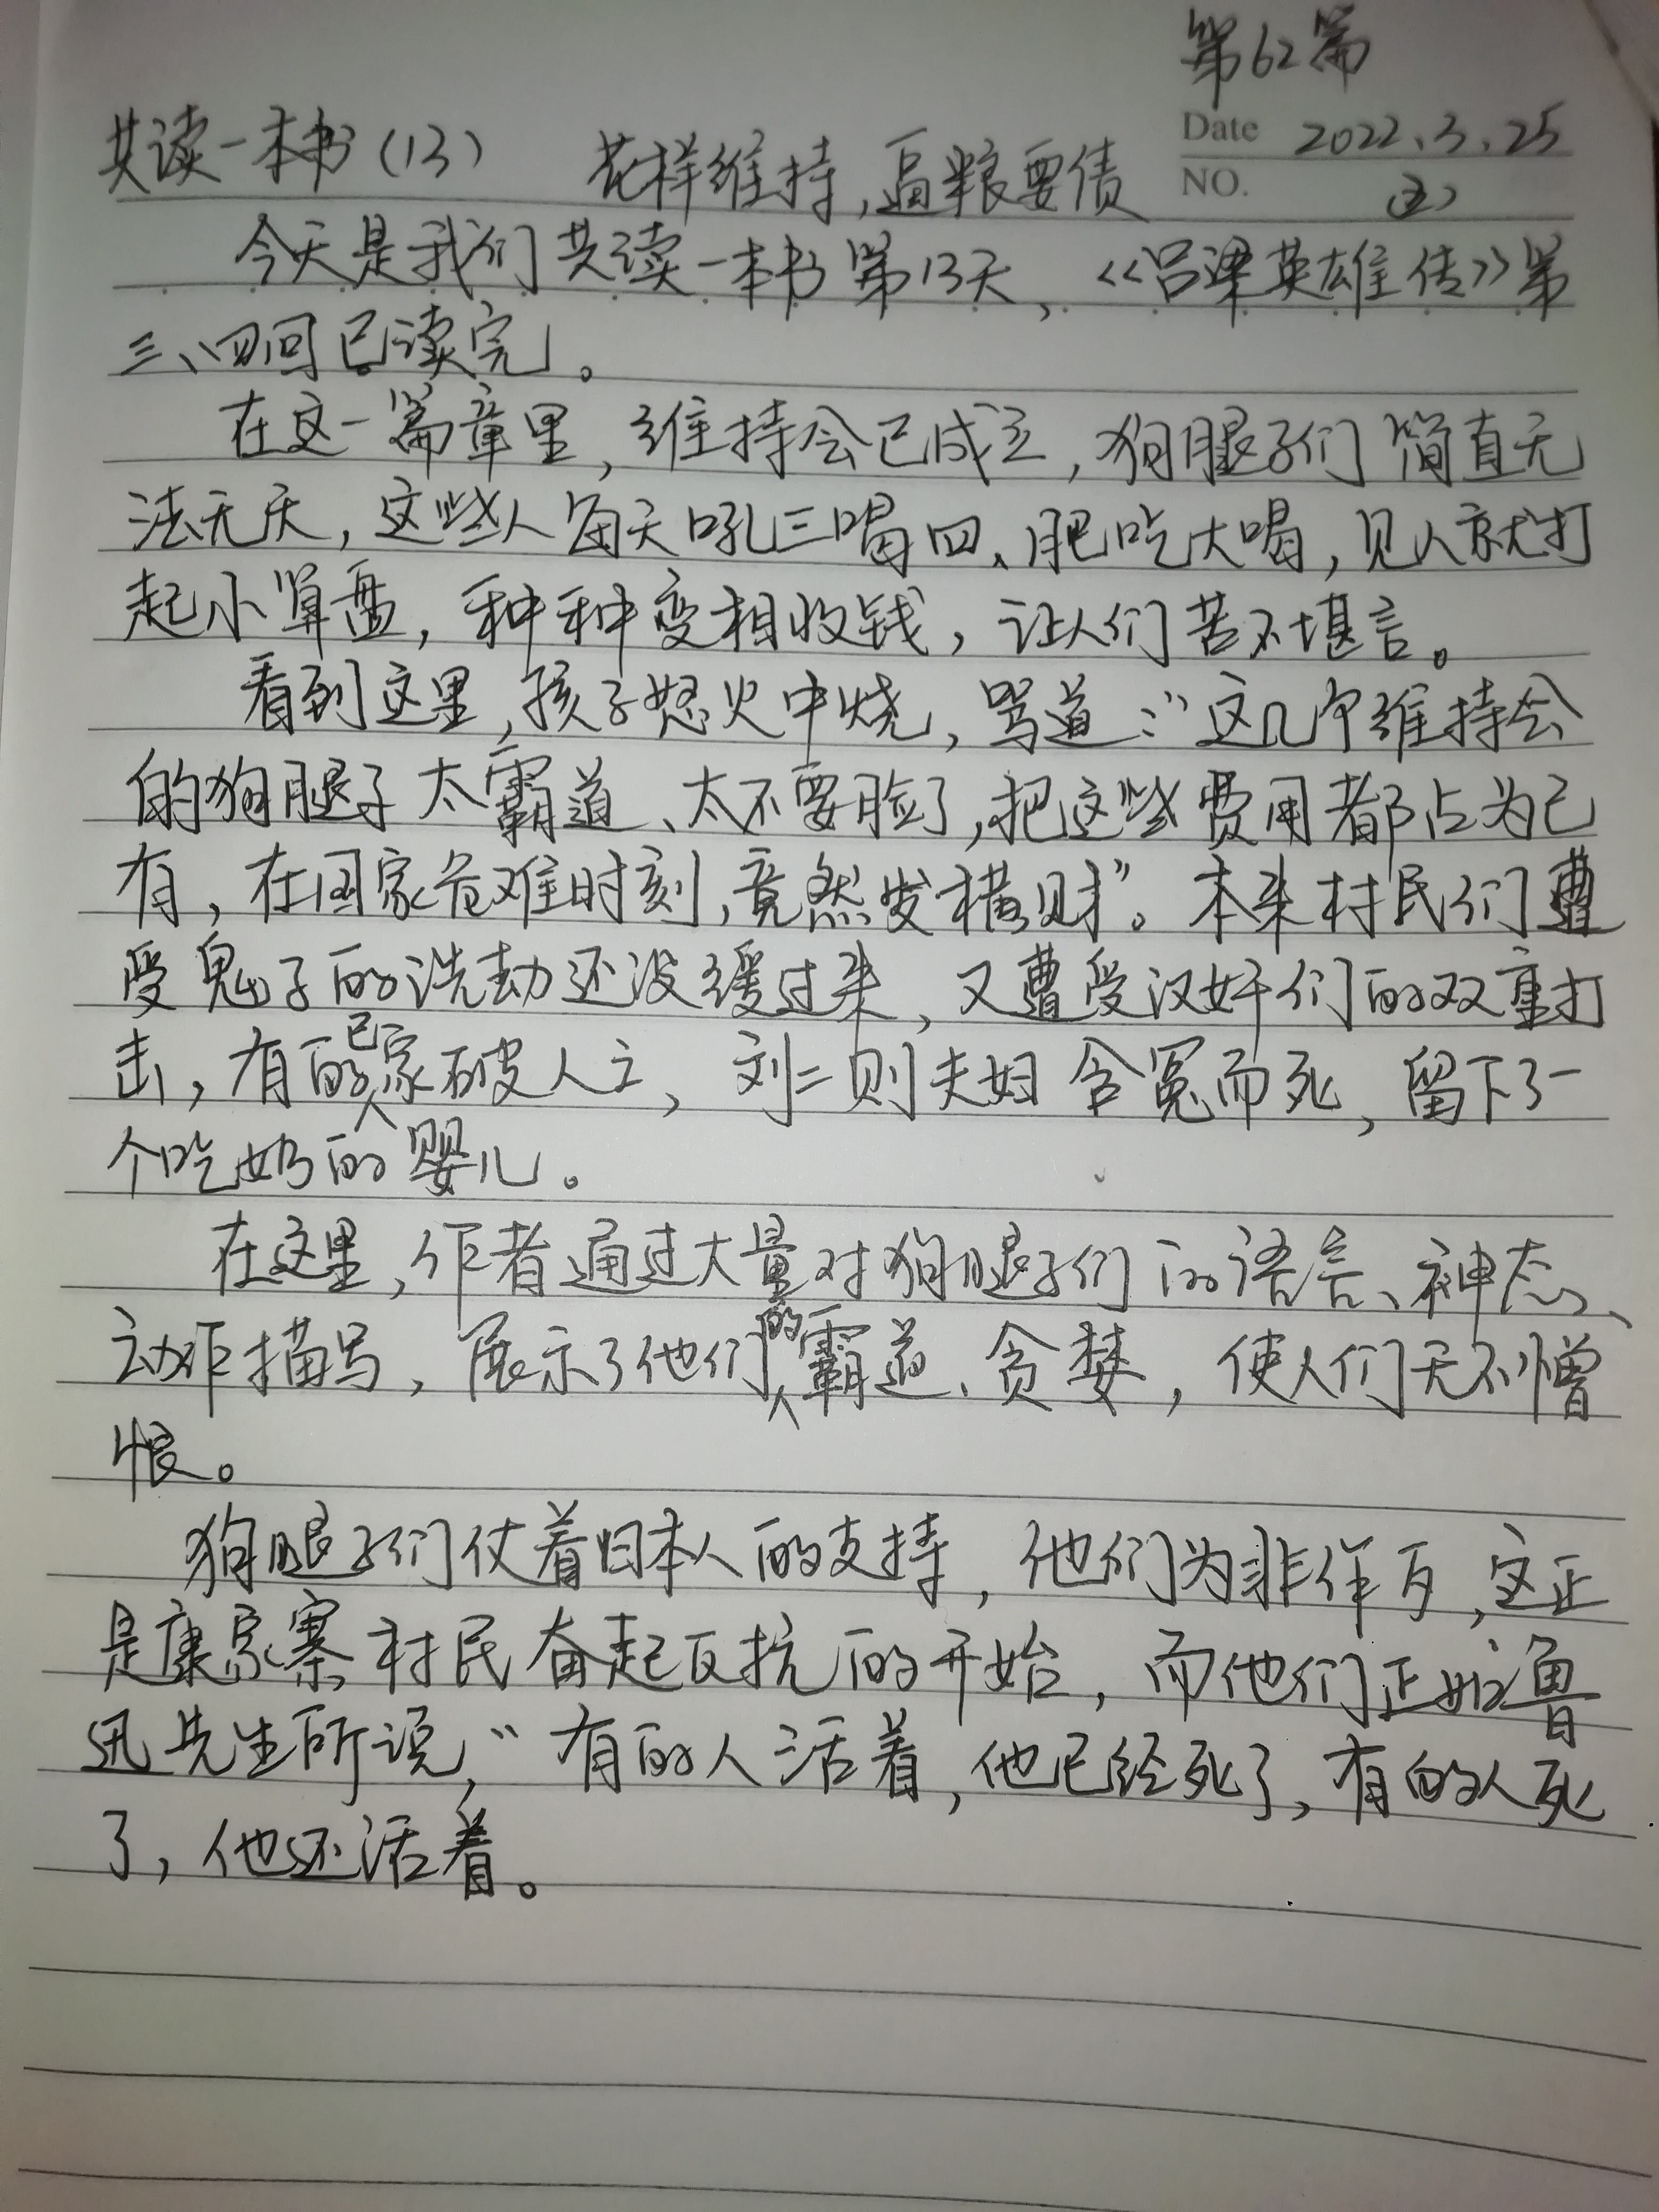 第62篇
Date 2022.3.25
NO. (五)
共读一本书(13) 花样维持,逼粮要债
今天是我们共读一本书第13天,《吕梁英雄传》第
三、四回已读完。
在这一篇章里,维持会已成立,狗腿子们简直无
法无天,这些人每天吼三喝四、肥吃大喝,见人就打
起小算盘,种种变相收钱,让人们苦不堪言。
看到这里,孩子怒火中烧,骂道:“这几个维持会
的狗腿子太霸道、太不要脸了,把这些费用都占为己
有,在国家危难时刻,竟然发横财”。本来村民们遭
受鬼子的洗劫还没缓过来,又遭受汉奸们的双重打
击,有的已家破人亡,刘二则夫妇含冤而死,留下了一
个吃奶的婴儿。
在这里,作者通过大量对狗腿子们的语言、神态、
动作描写,展示了他们的霸道、贪婪,使人们无不憎
恨。
狗腿子们仗着日本人的支持,他们为非作歹,这正
是康家寨村民奋起反抗的开始,而他们正如鲁
迅先生所说,“有的人活着,他已经死了,有的人死
了,他还活着。